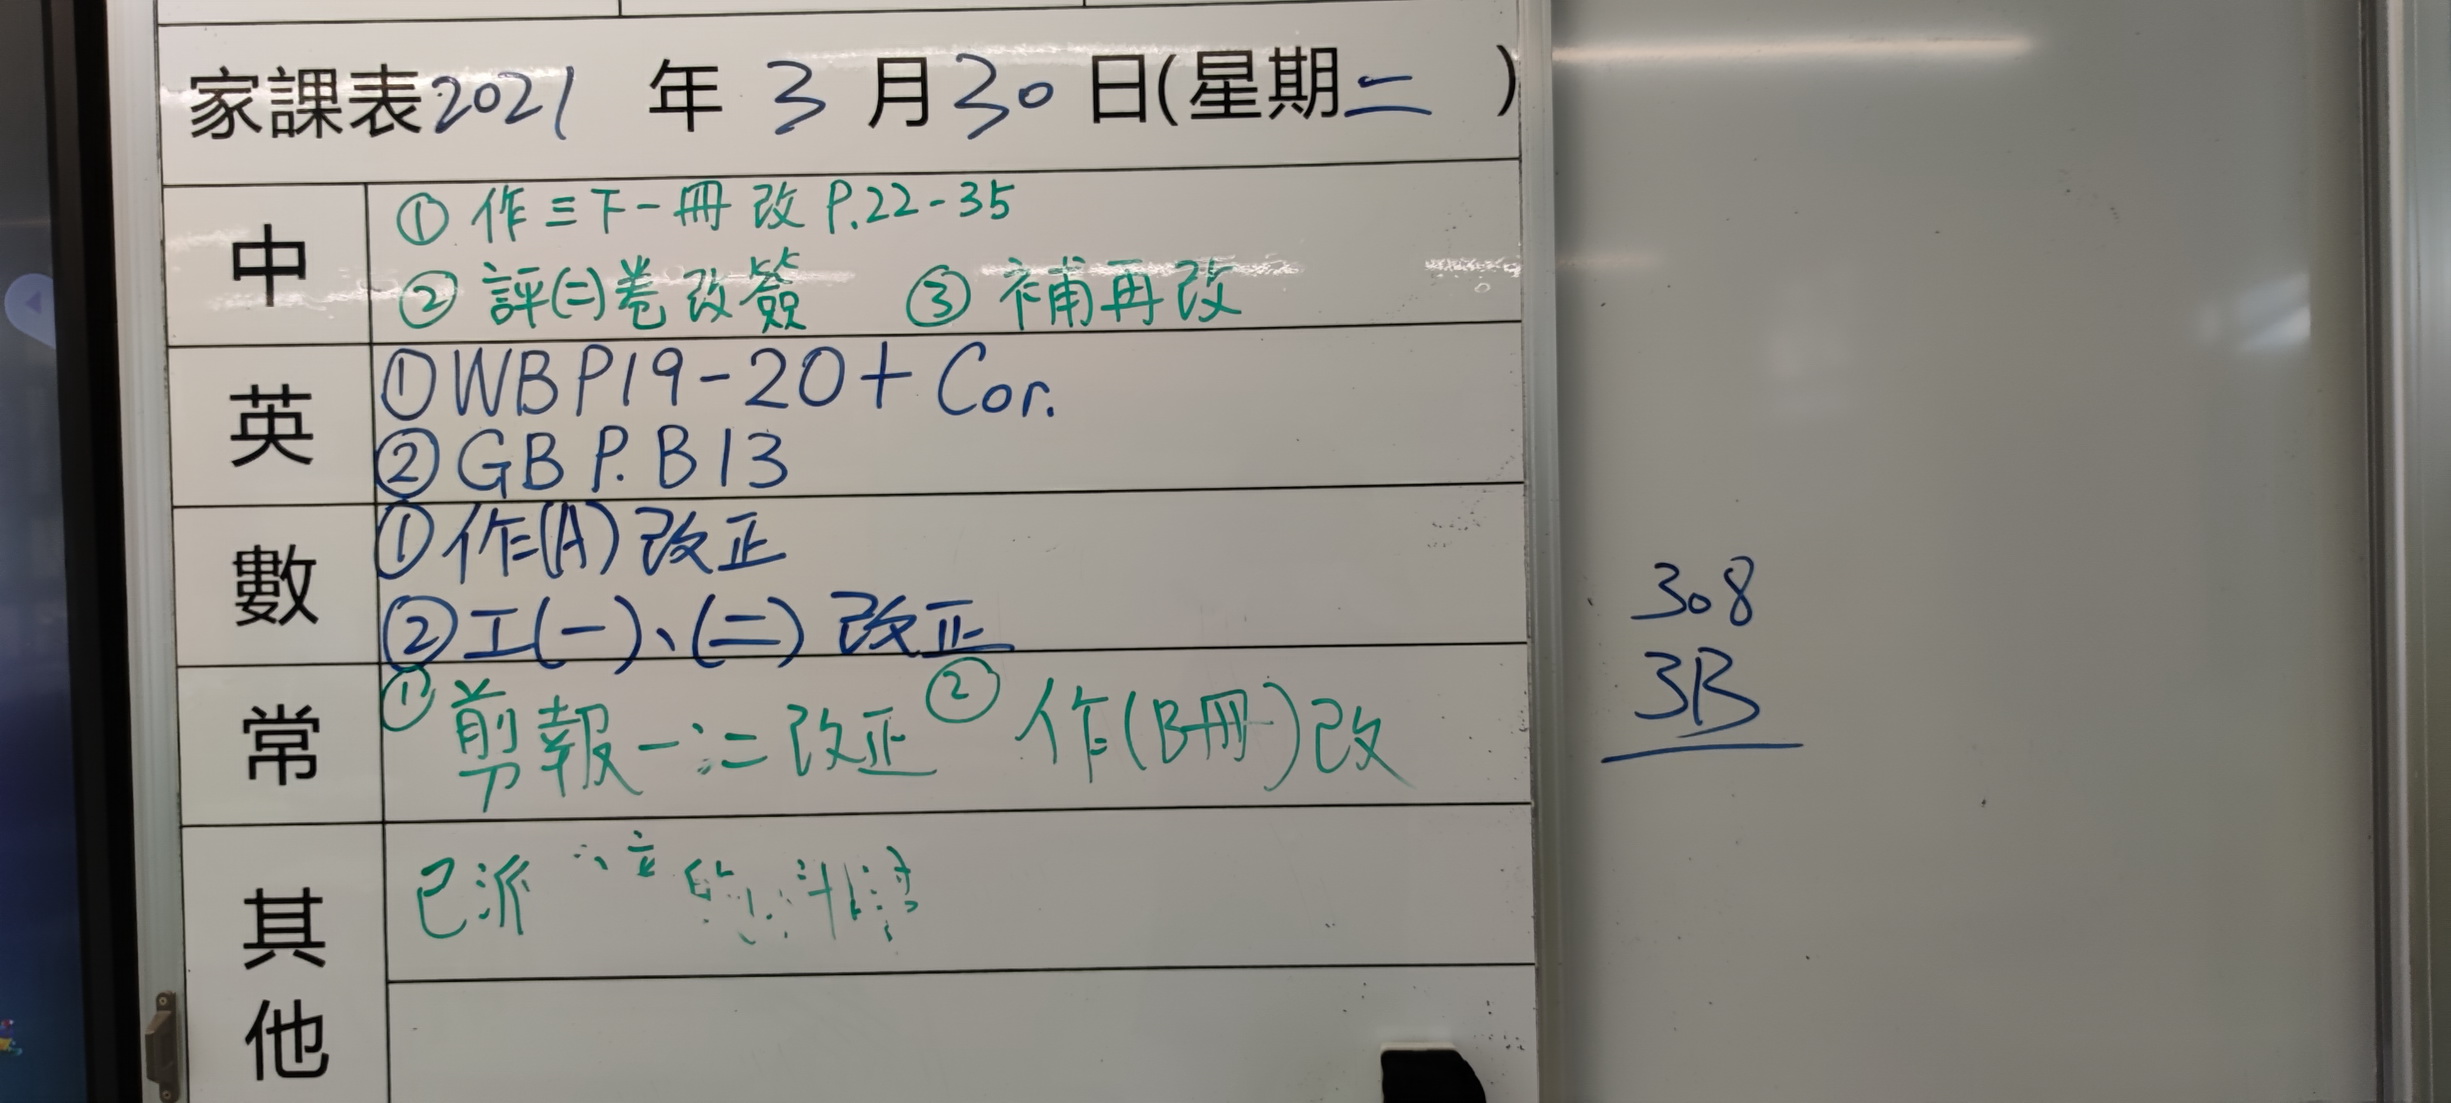 家課表2021年3月30日(星期二)
中
①作三下一冊改P.22-35
②評(二)卷改簽 ③補再改
英
①WBP19-20+Cor.
②GB P.B13
數
①作(A)改正
②工(一)、(二)改正
常
①剪報一:二改正 ②作(B冊)改
其他
已派
308
3B